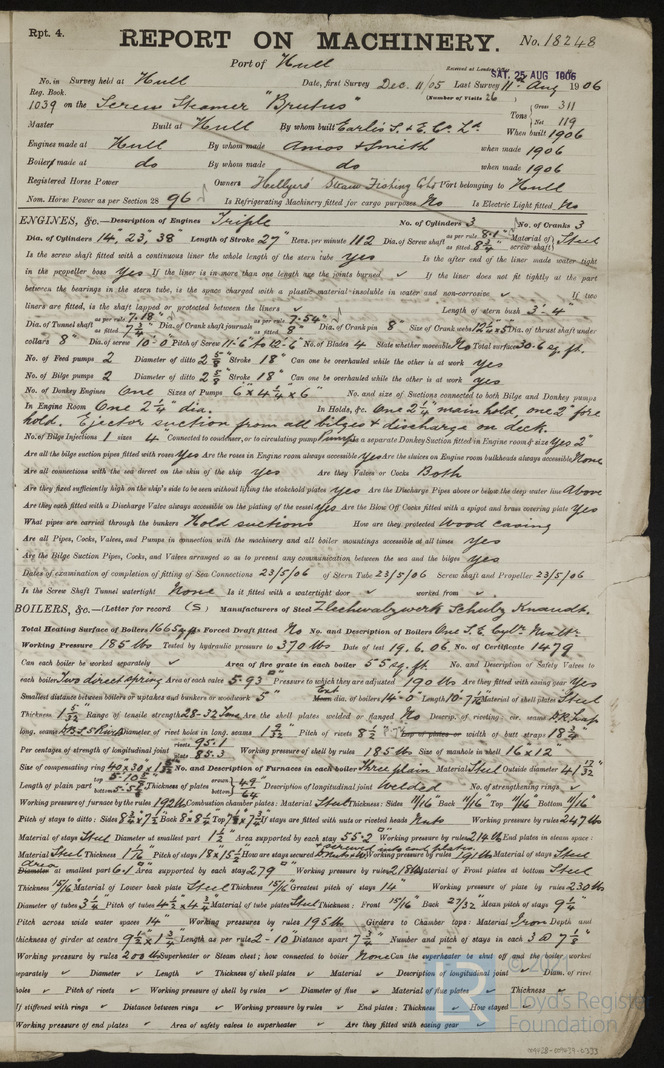 Rpt. 4.
REPORT ON MACHINERY.
No. 18248
Port of Hull
Received at London Office
SAT. 25 AUG 1906
No. in Survey held at Hull Date, first Survey Dec. 11/05 Last Survey 11th Aug 1906
Reg. Book. (Number of Visits 26)
1039 on the Screw Steamer "Brutus" Tons Gross 311 Net 119
Master Built at Hull By whom built Earles S. & E. Co. Ld. When built 1906
Engines made at Hull By whom made Amos & Smith when made 1906
Boilers made at do By whom made do when made 1906
Registered Horse Power Owners Hellyers' Steam Fishing Co Ld Port belonging to Hull
Nom. Horse Power as per Section 28 96 Is Refrigerating Machinery fitted for cargo purposes No Is Electric Light fitted No
ENGINES, &c.—Description of Engines Triple No. of Cylinders 3 No. of Cranks 3
Dia. of Cylinders 14", 23", 38" Length of Stroke 27" Revs. per minute 112 Dia. of Screw shaft as per rule 8.1" as fitted 8 3/4" Material of screw shaft Steel
Is the screw shaft fitted with a continuous liner the whole length of the stern tube yes Is the after end of the liner made water tight
in the propeller boss yes If the liner is in more than one length are the joints burned ✓ If the liner does not fit tightly at the part
between the bearings in the stern tube, is the space charged with a plastic material insoluble in water and non-corrosive ✓ If two
liners are fitted, is the shaft lapped or protected between the liners ✓ Length of stern bush 3'-4"
Dia. of Tunnel shaft as per rule 7.18" as fitted 7 3/4" Dia. of Crank shaft journals as per rule 7.54" as fitted 8" Dia. of Crank pin 8" Size of Crank webs Dia. of thrust shaft under
collars 8" Dia. of screw 10'-0" Pitch of Screw 11'-6" to 12'-6" No. of Blades 4 State whether moveable No Total surface 30.6 sq. ft.
No. of Feed pumps 2 Diameter of ditto 2 5/8" Stroke 18" Can one be overhauled while the other is at work yes
No. of Bilge pumps 2 Diameter of ditto 2 5/8" Stroke 18" Can one be overhauled while the other is at work yes
No. of Donkey Engines One Sizes of Pumps 6" x 4 1/4" x 6" No. and size of Suctions connected to both Bilge and Donkey pumps
In Engine Room One 2 1/4" dia. In Holds, &c. One 2 1/4" main hold, one 2" fore
hold. Ejector suction from all bilges & discharge on deck.
No. of Bilge Injections 1 sizes 4 Connected to condenser, or to circulating pump Pump Is a separate Donkey Suction fitted in Engine room & size Yes 2"
Are all the bilge suction pipes fitted with roses Yes Are the roses in Engine room always accessible Yes Are the sluices on Engine room bulkheads always accessible None
Are all connections with the sea direct on the skin of the ship yes Are they Valves or Cocks Both
Are they fixed sufficiently high on the ship's side to be seen without lifting the stokehold plates Yes Are the Discharge Pipes above or below the deep water line Above
Are they each fitted with a Discharge Valve always accessible on the plating of the vessel yes Are the Blow Off Cocks fitted with a spigot and brass covering plate Yes
What pipes are carried through the bunkers Hold suctions How are they protected Wood casing
Are all Pipes, Cocks, Valves, and Pumps in connection with the machinery and all boiler mountings accessible at all times yes
Are the Bilge Suction Pipes, Cocks, and Valves arranged so as to prevent any communication between the sea and the bilges yes
Dates of examination of completion of fitting of Sea Connections 23/5/06 of Stern Tube 23/5/06 Screw shaft and Propeller 23/5/06
Is the Screw Shaft Tunnel watertight None Is it fitted with a watertight door ✓ worked from ✓
BOILERS, &c.—(Letter for record (S) Manufacturers of Steel Blechwalzwerk Schulz Knaudt.
Total Heating Surface of Boilers 1665 sq ft Is Forced Draft fitted No No. and Description of Boilers One S. E. Cylr. Multr.
Working Pressure 185 lbs Tested by hydraulic pressure to 370 lbs Date of test 19.6.06 No. of Certificate 1479
Can each boiler be worked separately ✓ Area of fire grate in each boiler 55 sq. ft. No. and Description of Safety Valves to
each boiler Two direct spring Area of each valve 5.93 □" Pressure to which they are adjusted 190 lbs Are they fitted with easing gear Yes
Smallest distance between boilers or uptakes and bunkers or woodwork 5" Ext Mean dia. of boilers 14'-0" Length Material of shell plates Steel
Thickness 1 5/32" Range of tensile strength 28-32 Tons Are the shell plates welded or flanged No Descrip. of riveting: cir. seams D.R. Lap
long. seams Diameter of rivet holes in long. seams 1 9/32" Pitch of rivets 8 1/2" Lap of plates or width of butt straps 18 3/4"
Per centages of strength of longitudinal joint rivets 95.1 plate 85.3 Working pressure of shell by rules 185 lbs Size of manhole in shell 16" x 12"
Size of compensating ring No. and Description of Furnaces in each boiler Three plain Material Steel Outside diameter
Length of plain part top bottom Thickness of plates crown bottom 49/64" Description of longitudinal joint Welded No. of strengthening rings ✓
Working pressure of furnace by the rules 192 lbs Combustion chamber plates: Material Steel Thickness: Sides 11/16" Back 11/16" Top 11/16" Bottom 11/16"
Pitch of stays to ditto: Sides Back Top If stays are fitted with nuts or riveted heads Nuts Working pressure by rules 247 lbs
Material of stays Steel Diameter at smallest part 1 1/2" Area supported by each stay 55.2 □" Working pressure by rules 214 lbs End plates in steam space:
Material Steel Thickness 1 1/16" Pitch of stays 18" x 15 1/2" How are stays secured Working pressure by rules 191 lbs Material of stays Steel
Area Diameter at smallest part Area supported by each stay 279 □" Working pressure by rules Material of Front plates at bottom Steel
Thickness 15/16" Material of Lower back plate Steel Thickness 15/16" Greatest pitch of stays 14" Working pressure of plate by rules 230 lbs
Diameter of tubes 3 1/4" Pitch of tubes Material of tube plates Steel Thickness: Front 15/16" Back 27/32" Mean pitch of stays 9 1/4"
Pitch across wide water spaces 14" Working pressures by rules 195 lbs Girders to Chamber tops: Material Iron Depth and
thickness of girder at centre Length as per rule 2'-10" Distance apart 7 3/4" Number and pitch of stays in each 3 @ 7 1/8"
Working pressure by rules 200 lbs Superheater or Steam chest; how connected to boiler None Can the superheater be shut off and the boiler worked
separately ✓ Diameter ✓ Length ✓ Thickness of shell plates ✓ Material ✓ Description of longitudinal joint ✓ Diam. of rivet
holes ✓ Pitch of rivets ✓ Working pressure of shell by rules ✓ Diameter of flue ✓ Material of flue plates ✓ Thickness ✓
If stiffened with rings ✓ Distance between rings ✓ Working pressure by rules ✓ End plates: Thickness ✓ How stayed ✓
Working pressure of end plates ✓ Area of safety valves to superheater ✓ Are they fitted with easing gear ✓
LR
Lloyd's Register
Foundation